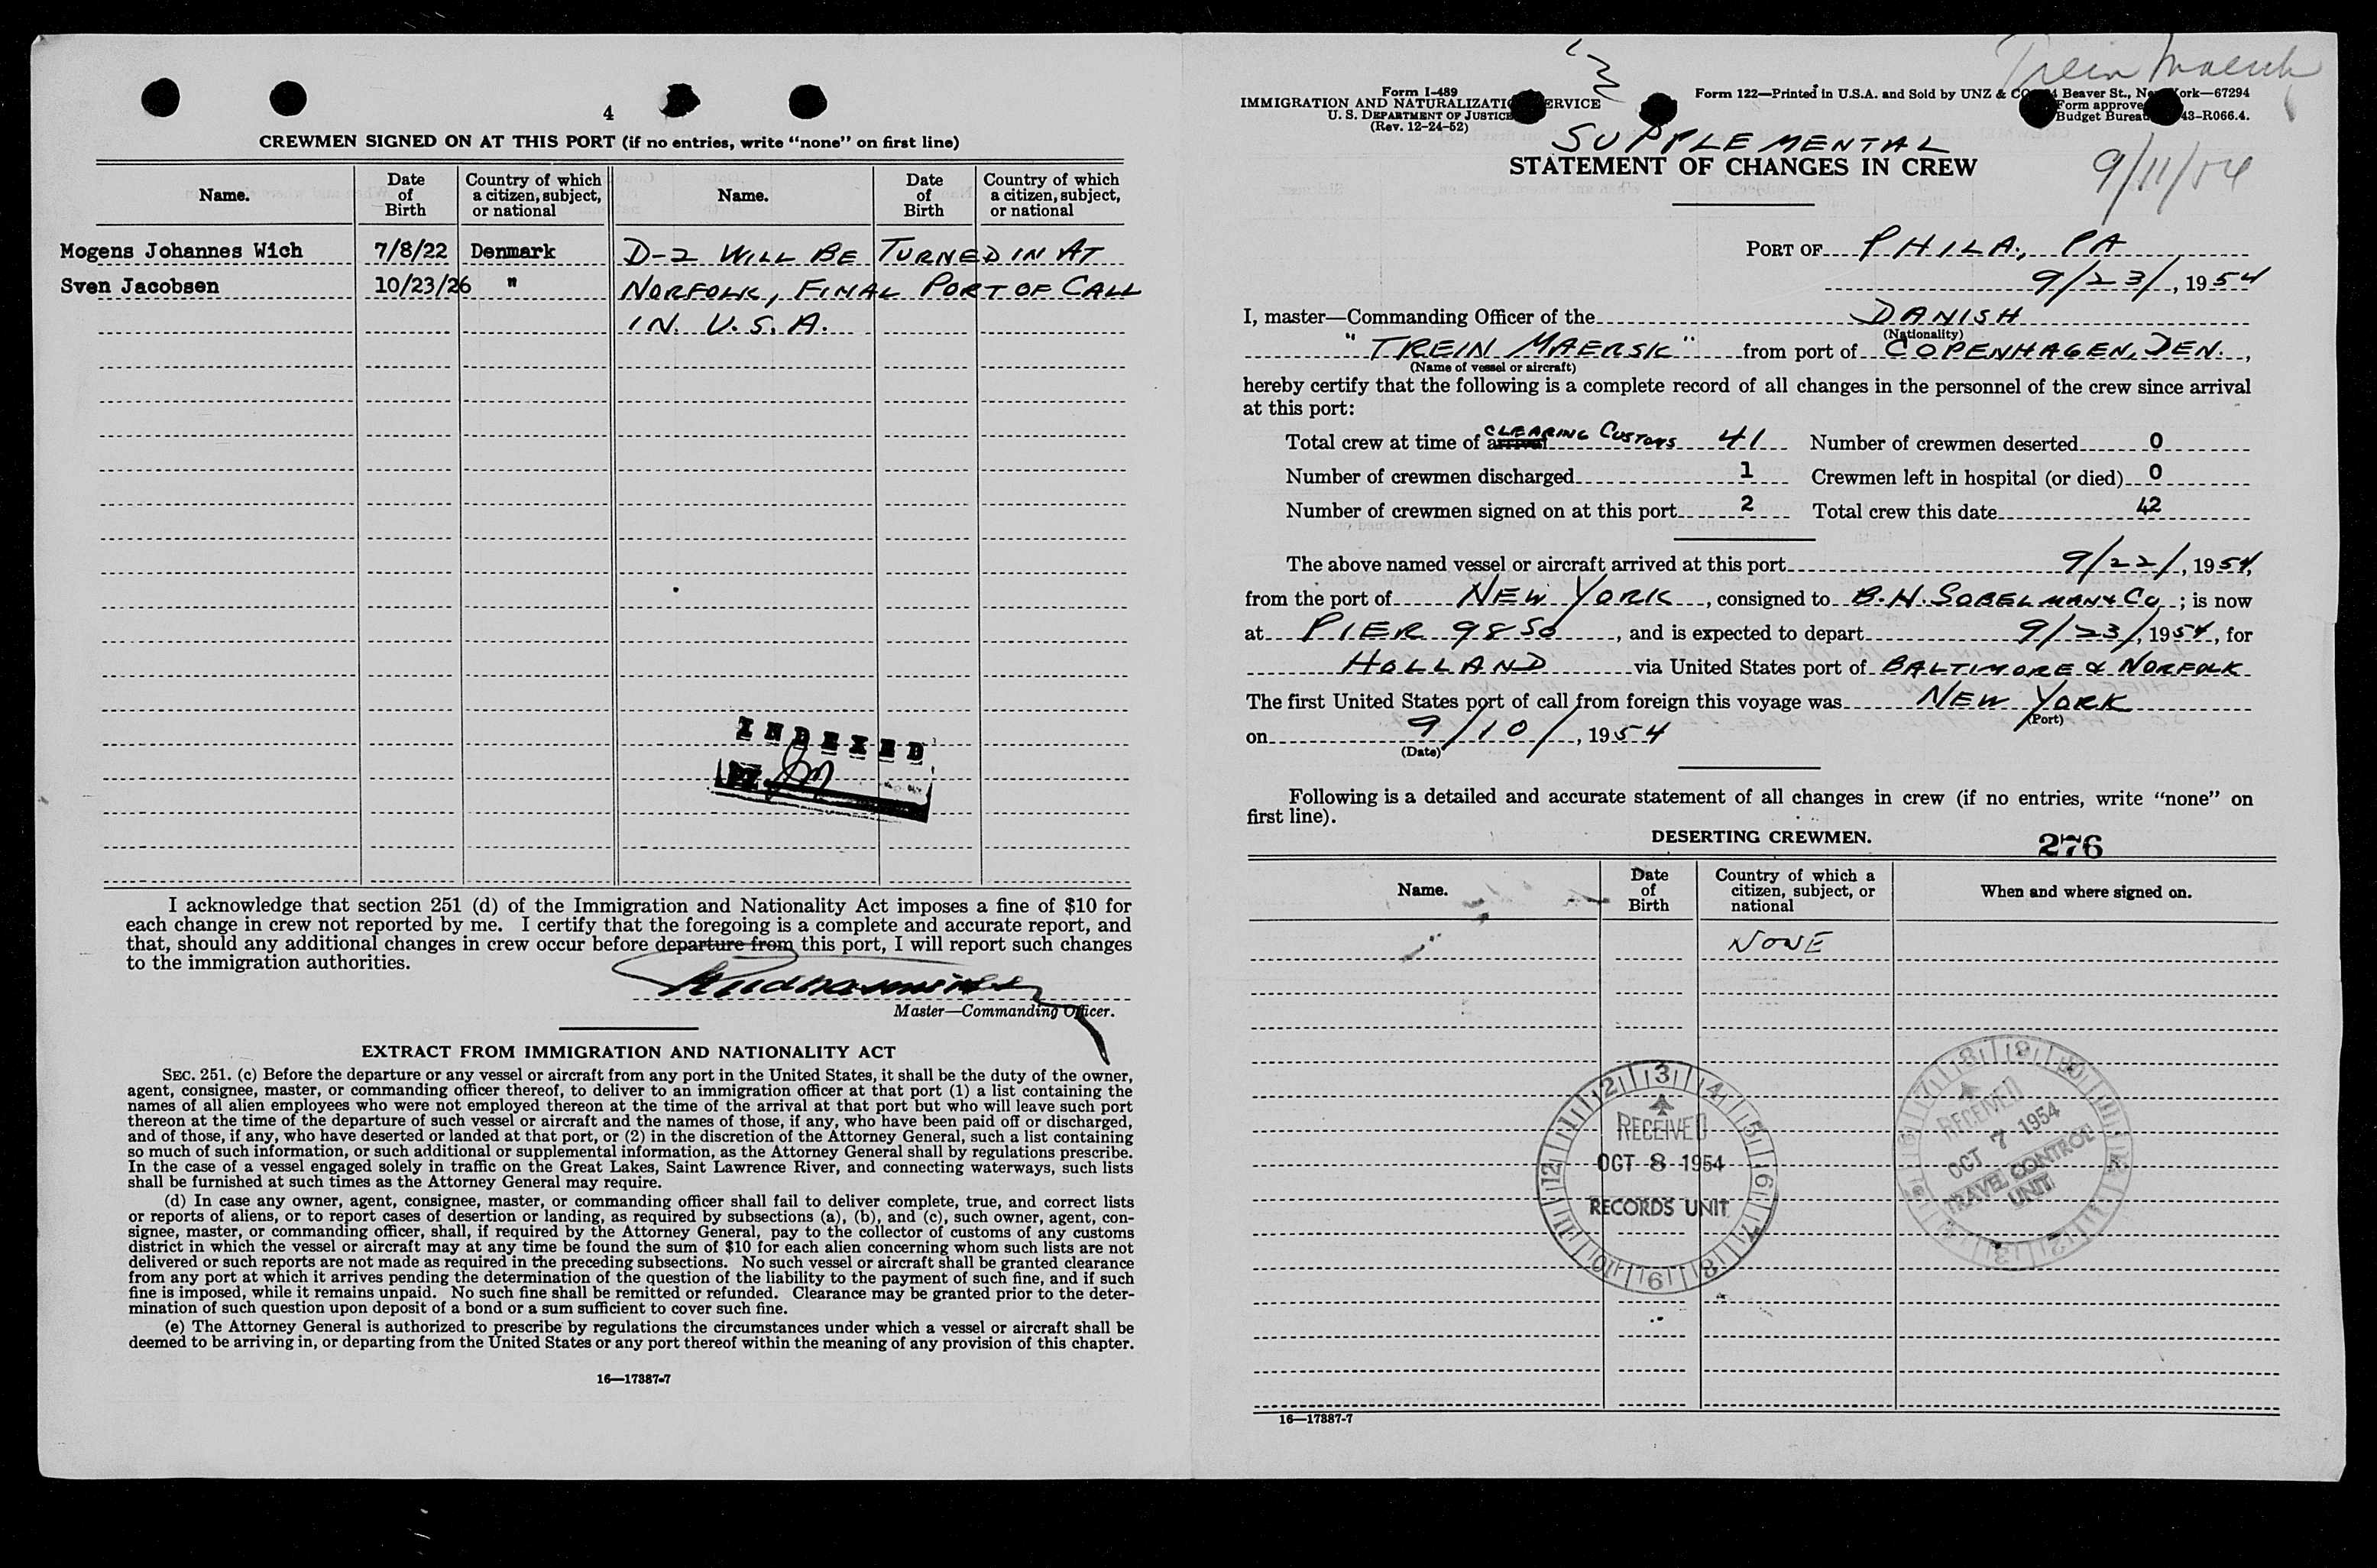 4
CREWMEN SIGNED ON AT THIS PORT (if no entries, write “none” on first line)
Name. Date of Birth Country of which a citizen, subject, or national Name. Date of Birth Country of which a citizen, subject, or national
Mogens Johannes Wich 7/8/22 Denmark D-2 WILL BE TURNED IN AT
Sven Jacobsen 10/23/26 " NORFOLK, FINAL PORT OF CALL
IN U.S.A.
INDEXED
I acknowledge that section 251 (d) of the Immigration and Nationality Act imposes a fine of $10 for
each change in crew not reported by me. I certify that the foregoing is a complete and accurate report, and
that, should any additional changes in crew occur before departure from this port, I will report such changes
to the immigration authorities.
Master—Commanding Officer.
EXTRACT FROM IMMIGRATION AND NATIONALITY ACT
SEC. 251. (c) Before the departure or any vessel or aircraft from any port in the United States, it shall be the duty of the owner,
agent, consignee, master, or commanding officer thereof, to deliver to an immigration officer at that port (1) a list containing the
names of all alien employees who were not employed thereon at the time of the arrival at that port but who will leave such port
thereon at the time of the departure of such vessel or aircraft and the names of those, if any, who have been paid off or discharged,
and of those, if any, who have deserted or landed at that port, or (2) in the discretion of the Attorney General, such a list containing
so much of such information, or such additional or supplemental information, as the Attorney General shall by regulations prescribe.
In the case of a vessel engaged solely in traffic on the Great Lakes, Saint Lawrence River, and connecting waterways, such lists
shall be furnished at such times as the Attorney General may require.
(d) In case any owner, agent, consignee, master, or commanding officer shall fail to deliver complete, true, and correct lists
or reports of aliens, or to report cases of desertion or landing, as required by subsections (a), (b), and (c), such owner, agent, con-
signee, master, or commanding officer, shall, if required by the Attorney General, pay to the collector of customs of any customs
district in which the vessel or aircraft may at any time be found the sum of $10 for each alien concerning whom such lists are not
delivered or such reports are not made as required in the preceding subsections. No such vessel or aircraft shall be granted clearance
from any port at which it arrives pending the determination of the question of the liability to the payment of such fine, and if such
fine is imposed, while it remains unpaid. No such fine shall be remitted or refunded. Clearance may be granted prior to the deter-
mination of such question upon deposit of a bond or a sum sufficient to cover such fine.
(e) The Attorney General is authorized to prescribe by regulations the circumstances under which a vessel or aircraft shall be
deemed to be arriving in, or departing from the United States or any port thereof within the meaning of any provision of this chapter.
16—17387-7
Trein Maersk
Form I-489
IMMIGRATION AND NATURALIZATI ERVICE
U. S. DEPARTMENT OF JUSTICE
(Rev. 12-24-52)
Form 122—Printed in U.S.A. and Sold by UNZ & CO. Beaver St., Ne ork—67294
Form approve
Budget Burea 43-R066.4.
SUPPLEMENTAL
STATEMENT OF CHANGES IN CREW
9/11/54
PORT OF PHILA., PA
9/23/, 1954
I, master—Commanding Officer of the DANISH
(Nationality)
"TREIN MAERSK" from port of COPENHAGEN, DEN.,
(Name of vessel or aircraft)
hereby certify that the following is a complete record of all changes in the personnel of the crew since arrival
at this port:
Total crew at time of arrival CLEARING CUSTOMS 41 Number of crewmen deserted 0
Number of crewmen discharged 1 Crewmen left in hospital (or died) 0
Number of crewmen signed on at this port 2 Total crew this date 42
The above named vessel or aircraft arrived at this port 9/22/, 1954,
from the port of NEW YORK, consigned to B.H. SOBELMAN & Co; is now
at PIER 98 So, and is expected to depart 9/23/, 1954, for
HOLLAND via United States port of BALTIMORE & NORFOLK
The first United States port of call from foreign this voyage was NEW YORK
(Port)
on 9/10/, 1954
(Date)
Following is a detailed and accurate statement of all changes in crew (if no entries, write “none” on
first line).
DESERTING CREWMEN.
276
Name. Date of Birth Country of which a citizen, subject, or national When and where signed on.
NONE
RECEIVED
OCT 8 1954
RECORDS UNIT
RECEIVED
OCT 7 1954
TRAVEL CONTROL
UNIT
16—17387-7